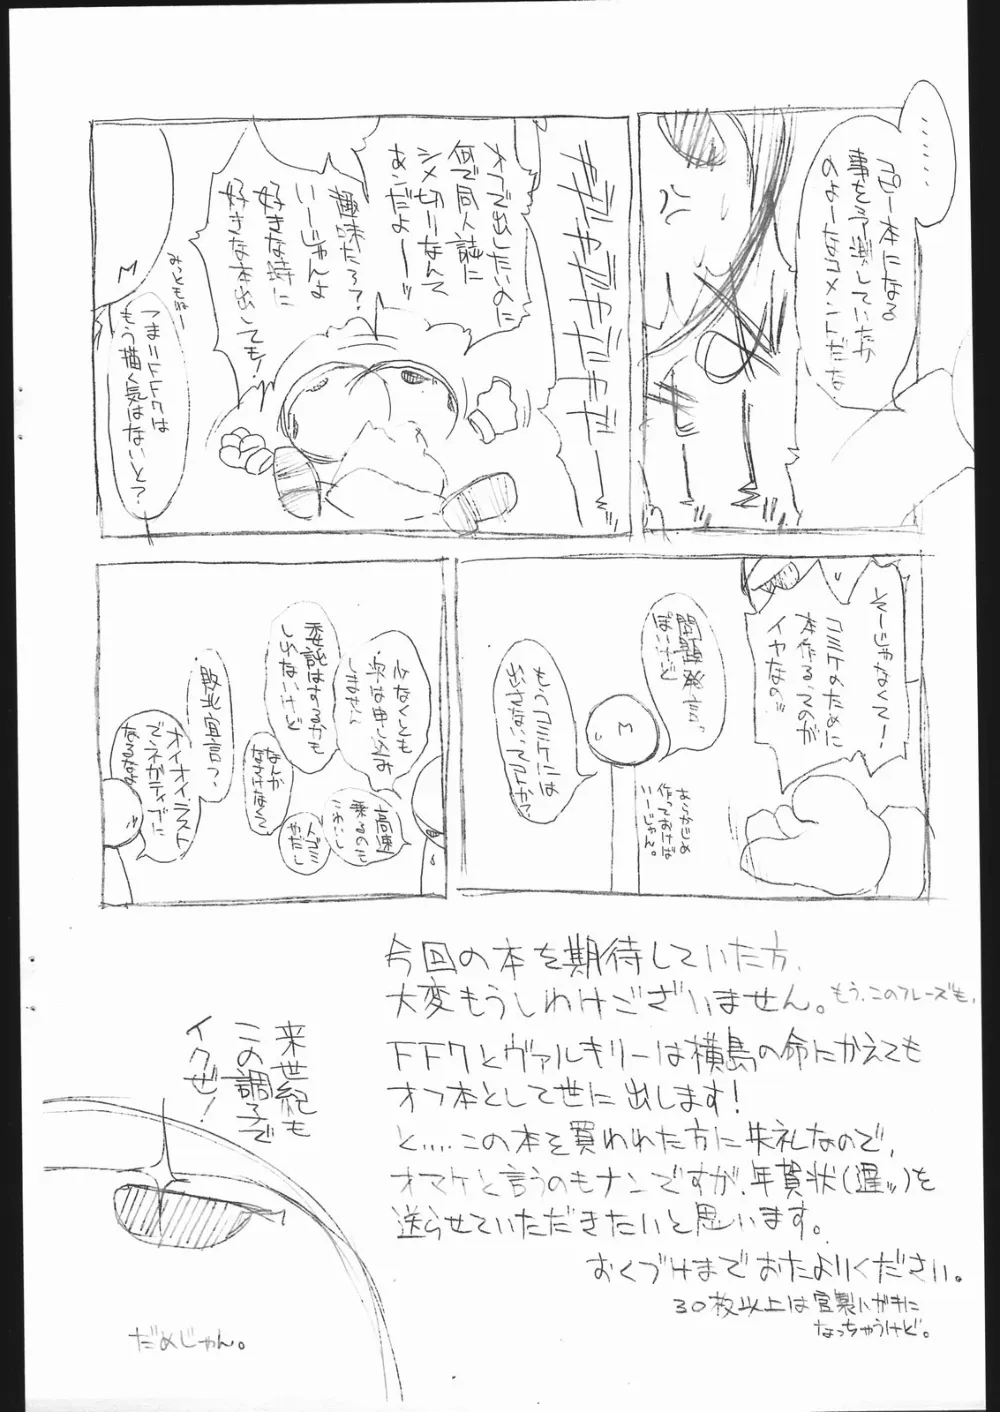 ………
コピー本になる
事を予測していたか
のよーなコメントだな
ギャラャャアアアダダダー
オフで出したいのに
何で同人誌に
シメ切りなんて
あンだよーッ
趣味だろ?
いーじゃんよ
好きな時に
好きな本出しても!
みっともねー
M
つまりFF7は
もう描く気はないと?
そーじゃなくてー!
コミケのために
本作るってのが
イヤなの!!
問題発言っ
ぽいけど
M
あらかじめ
作っておけば
いーじゃん。
もうコミケには
出さないってコトか?
少なくとも
次は申し込み
しません
委託はするかも
しれないけど
高速
乗るのも
こわいし
人ゴミ
やだし
なんか
なさけなくて
敗北宣言?
オイオイ、ラスト
でネガティブに
なるなよ
今回の本を期待していた方、
大変もうしわけございません。もう、このフレーズも、
FF7とヴァルキリーは横島の命にかえても
オフ本として世に出します!
と.....この本を買われた方に失礼なので、
オマケと言うのもナンですが、年賀状(遅ッ)を
送らせていただきたいと思います。
おくづけまでおたよりください。
30枚以上は官製ハガキに
なっちゃうけど。
来世紀も
この調子で
イクぜ!
だめじゃん。